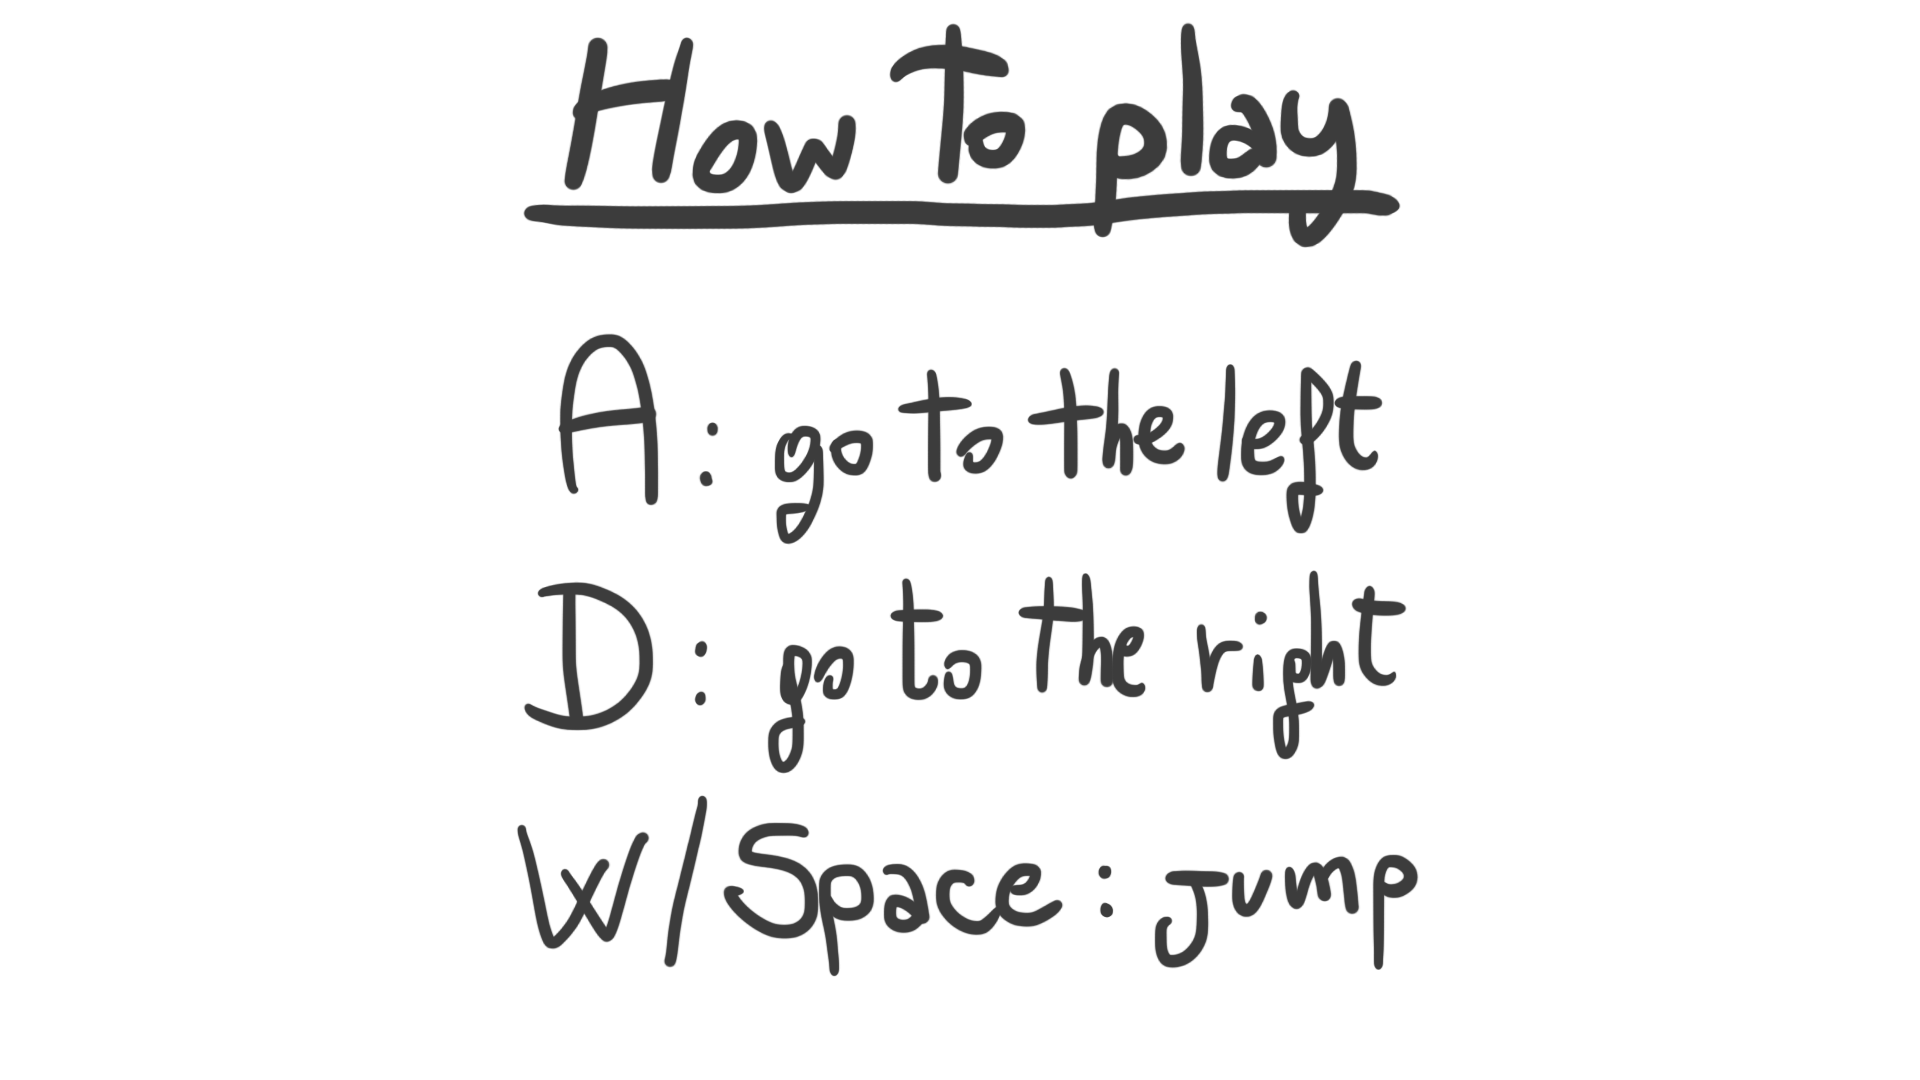 How To play
A : go to the left
D : go to the right
W/Space : jump